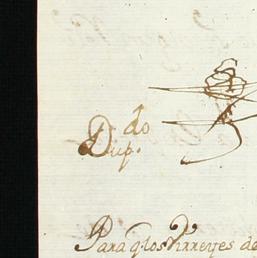 Dup.do
Para q.e los Virreyes de